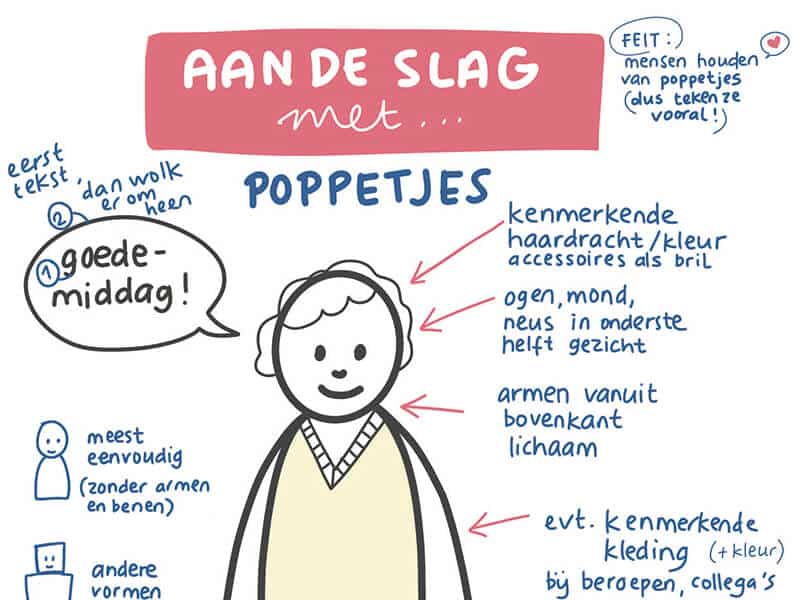 AAN DE SLAG
met...
FEIT:)
mensen houden
van poppetjes
(dus teken ze
vooral!)
POPPETJES
eerst
tekst,
dan wolk
er om
heen
2
1
goede-
middag!
kenmerkende
haardracht/kleur
accessoires als bril
ogen, mond,
neus in onderste
helft gezicht
armen vanuit
bovenkant
lichaam
meest
eenvoudig
(zonder armen
en benen)
evt. kenmerkende
kleding (+kleur)
bij beroepen, collega's
andere
vormen